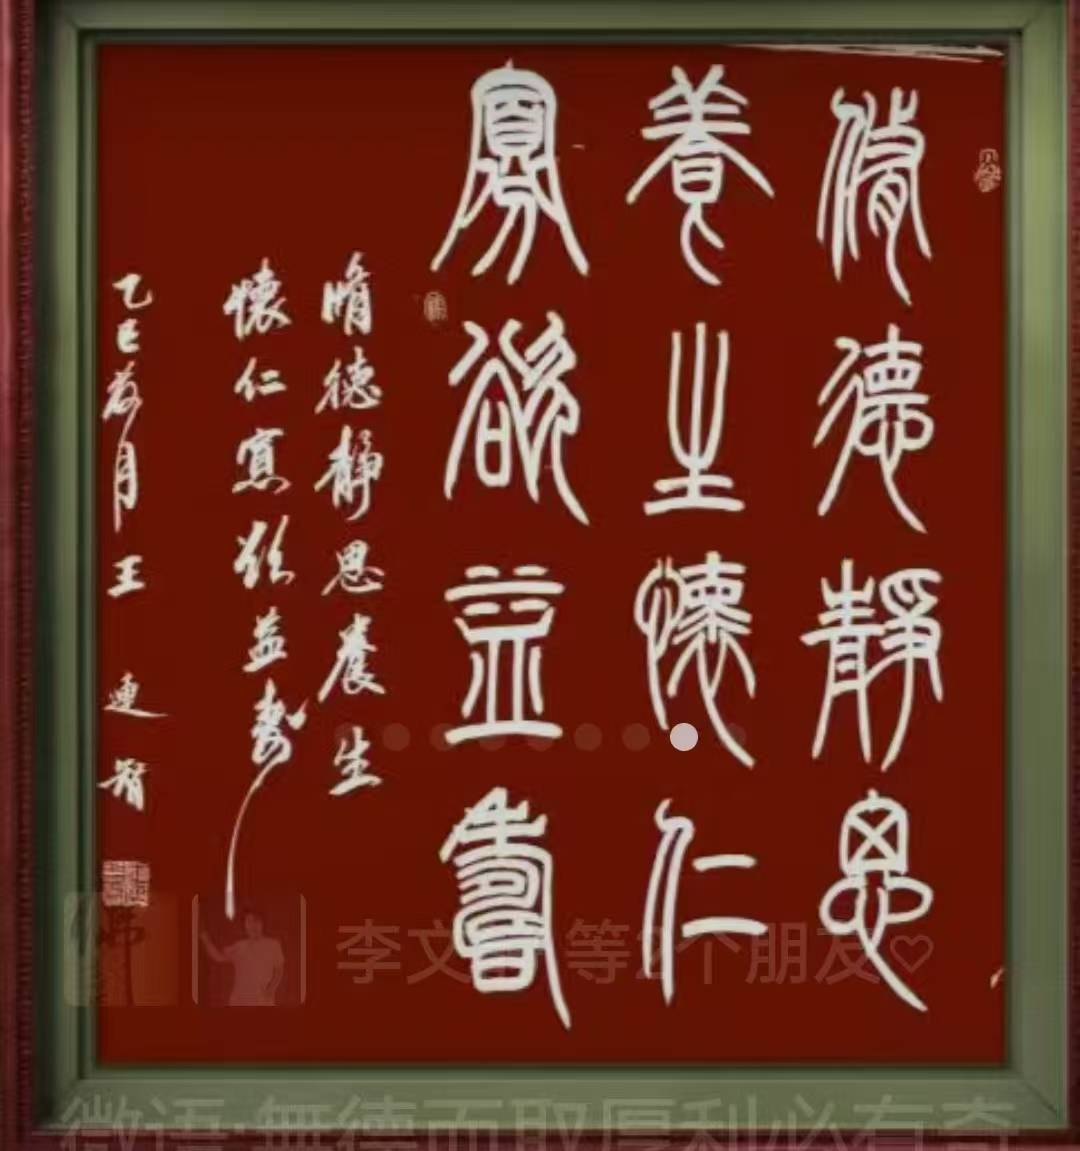 脩德靜思
養生懷仁
寡欲益壽
脩德靜思養生
懷仁寡欲益壽
乙巳月王連智
李文等2个朋友♡
微语:無德而取厚利必有奇